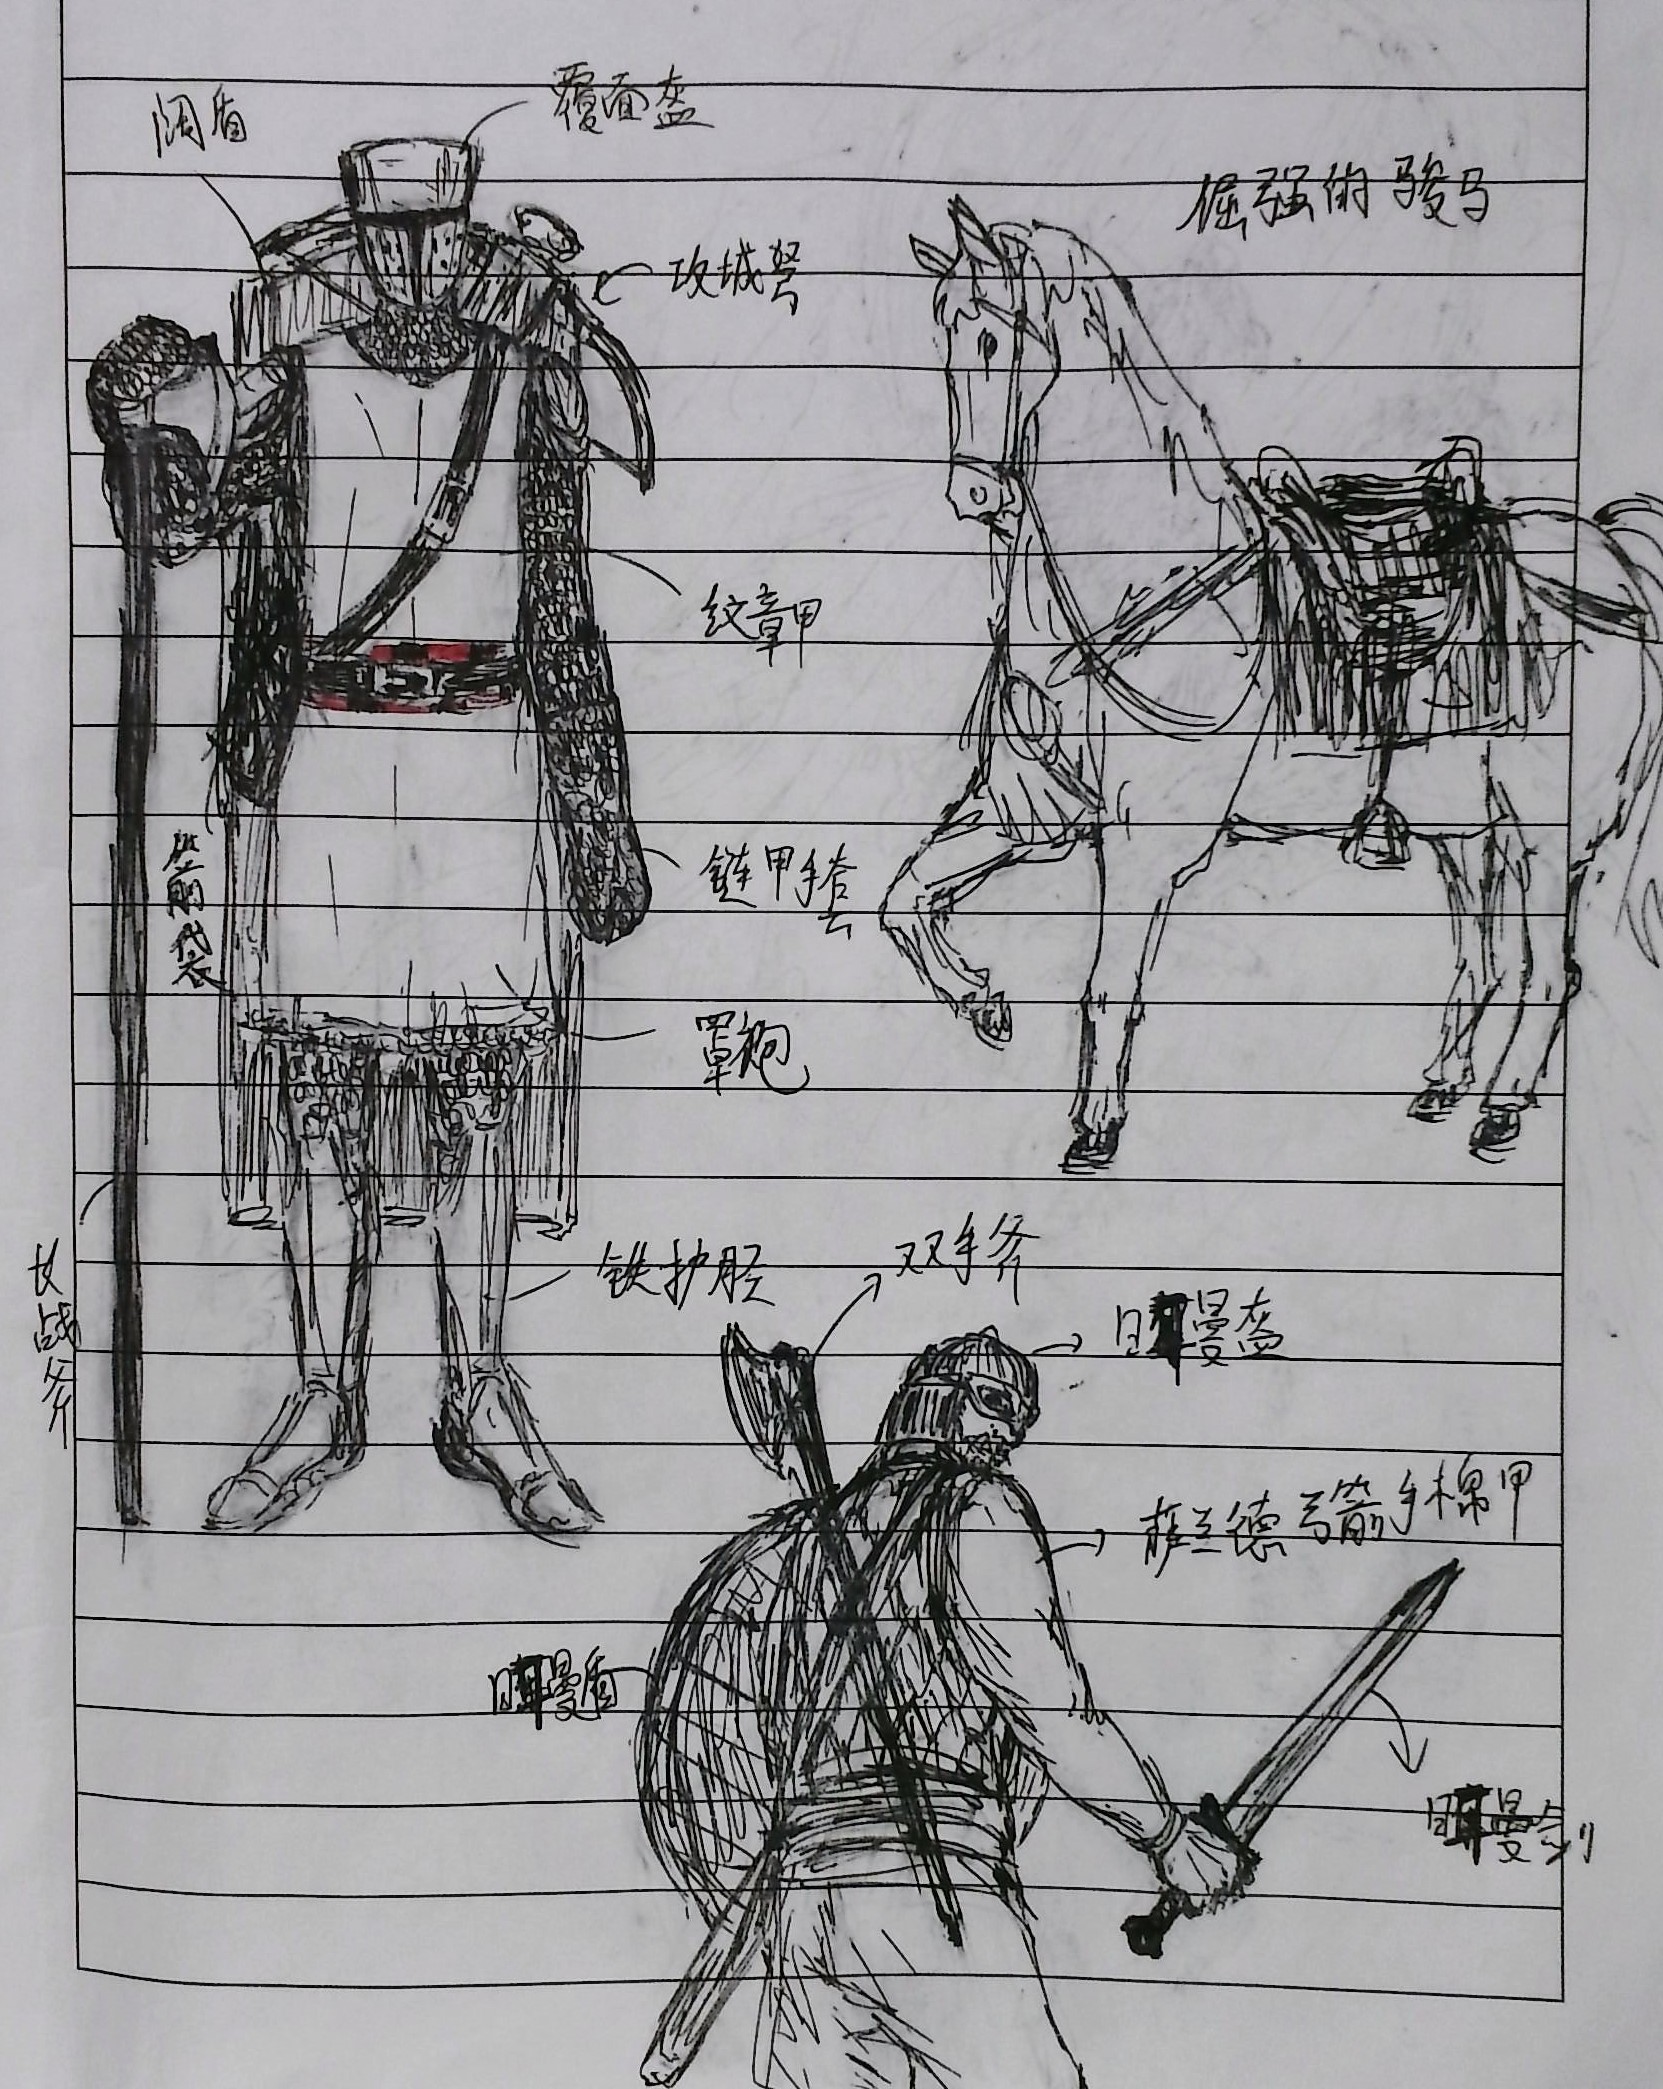 阔盾
覆面盔
倔强的骏马
攻城弩
纹章甲
链甲手套
箭袋
罩袍
铁护胫
长战斧
双手斧
日耳曼盔
萨兰德弓箭手棉甲
日耳曼盾
日耳曼剑